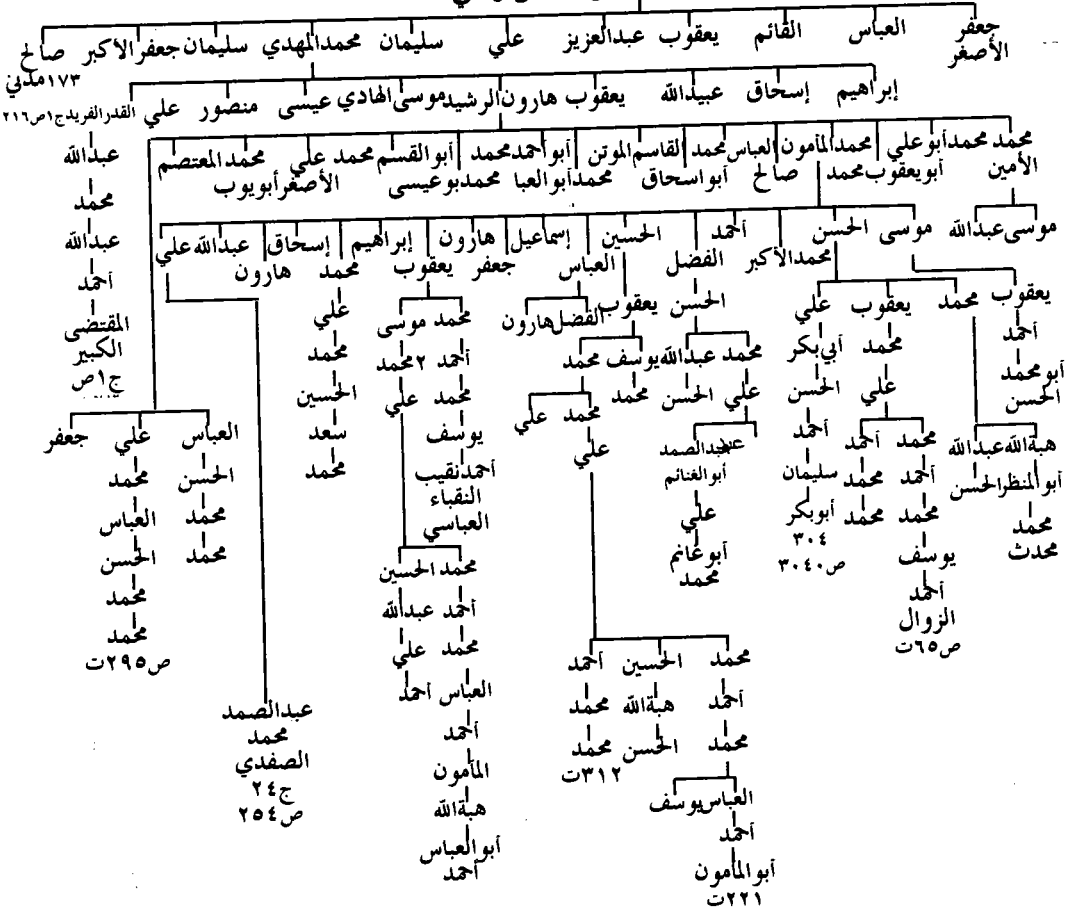 جعفر الأصغر العباس القائم يعقوب عبدالعزيز علي سليمان محمدالمهدي سليمان جعفرالأكبر صالح
١٧٣مدني
إبراهيم إسحاق عبيدالله يعقوب هارون الرشيد موسى الهادي عيسى منصور علي القدرالفريدج١ص٢١٦
محمد الأمين محمد أبوعلي محمدالمأمون العباس محمد القاسم الموتن أبوأحمد محمد أبوالقسم محمد علي محمد المعتصم
أبويعقوب محمد صالح أبواسحاق محمد أبوالعبا محمد بوعيسى الأصغر أبويوب
موسى عبدالله
موسى الحسن أحمد الحسين إسماعيل هارون إبراهيم إسحاق عبدالله علي
محمدالأكبر الفضل العباس جعفر يعقوب محمد هارون
عبدالله
محمد
عبدالله
أحمد
المقتضى
الكبير
ج١ص
يعقوب
أحمد
أبومحمد
الحسن
محمد
هبةالله عبدالله
أبوالمنظر الحسن
محمد
محدث
يعقوب
محمد
علي
محمد أحمد
أحمد محمد
محمد محمد
يوسف
أحمد
الزوال
ص٦٥ت
علي
أبي بكر
الحسن
أحمد
سليمان
أبوبكر
٣٠٤
ص٣٠٤٠
الحسن
محمد عبدالله
علي الحسن
عبدالصمد
أبوالغنائم
علي
أبوغانم
محمد
يعقوب
يوسف محمد
محمد
محمد علي
علي
الفضل هارون
محمد الحسين أحمد
أحمد هبةالله محمد
محمد الحسن محمد
٣١٢ت
العباس يوسف
أحمد
أبوالمأمون
٢٢١ت
محمد موسى
أحمد ٢محمد
محمد علي
يوسف
أحمدنقيب
النقباء
العباسي
محمد الحسين
أحمد عبدالله
محمد علي
العباس أحمد
أحمد
المأمون
هبةالله
أبوالعباس
أحمد
علي
محمد
الحسين
سعد
محمد
عبدالصمد
محمد
الصفدي
ج٢٤
ص٢٥٤
العباس علي جعفر
الحسن محمد
محمد العباس
محمد الحسن
محمد
محمد
ص٢٩٥ت